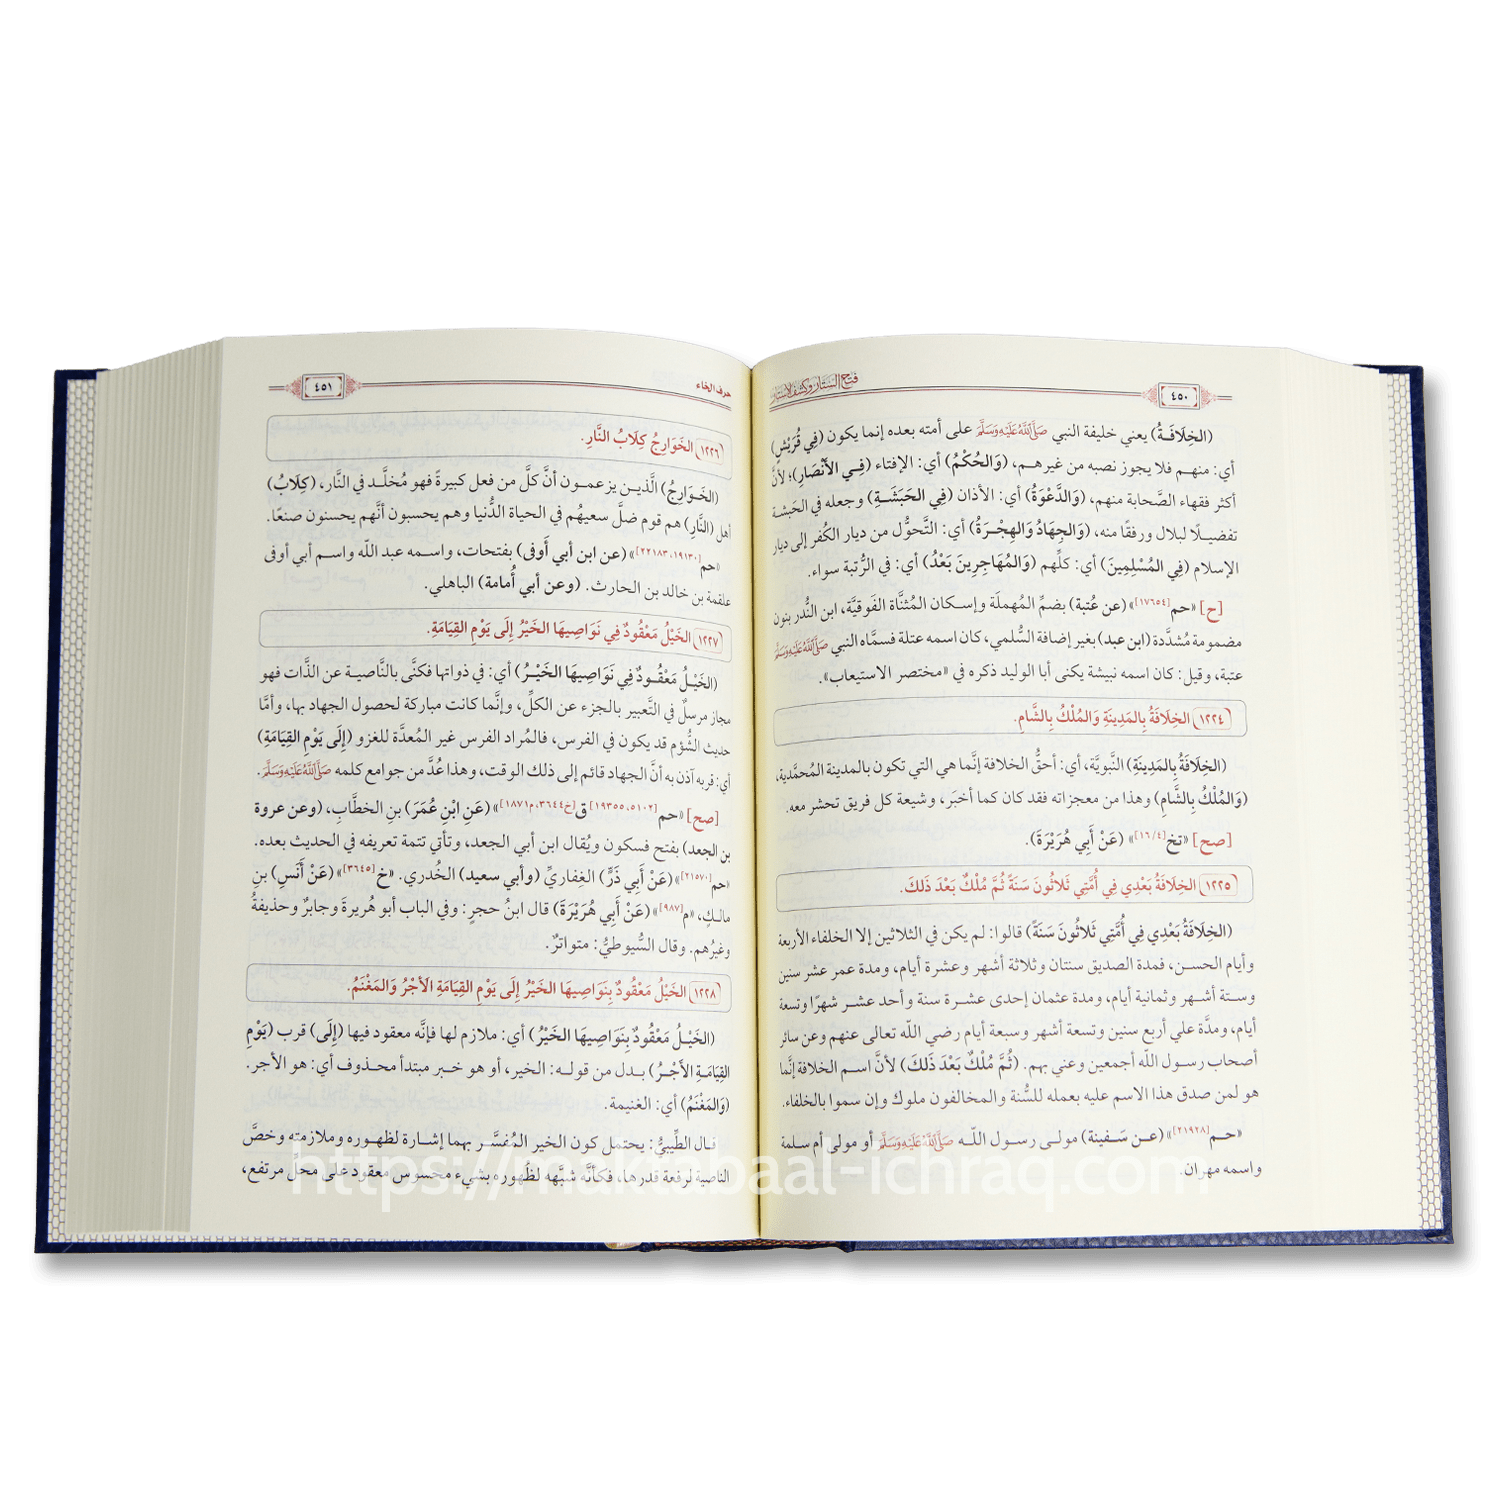 ٤٥٠
فتح الستار وكشف الأستار
(الخِلَافَةُ) يعني خليفة النبي ﷺ على أمته بعده إنما يكون (فِي قُرَيْشٍ)
أي: منهم فلا يجوز نصبه من غيرهم، (وَالحُكْمُ) أي: الإفتاء (فِي الأَنْصَارِ)؛ لأنَّ
أكثر فقهاء الصَّحابة منهم، (وَالدَّعْوَةُ) أي: الأذان (فِي الحَبَشَةِ) وجعله في الحَبشة
تفضيلًا لبلال ورفقًا منه، (وَالجِهَادُ وَالهِجْرَةُ) أي: التَّحوُّل من ديار الكُفر إلى ديار
الإسلام (فِي المُسْلِمِينَ) أي: كلِّهم (وَالمُهَاجِرِينَ بَعْدُ) أي: في الرُّتبة سواء.
[ح] «حم[١٧٦٥٤]» (عن عُتبة) بضمِّ المُهملَة وإسكان المُثنَّاة الفَوقيَّة، ابن النُّدر بنون
مضمومة مُشدَّدة (ابن عبد) بغير إضافة السُّلمي، كان اسمه عتلة فسمَّاه النبي ﷺ
عتبة، وقيل: كان اسمه نبيشة يكنى أبا الوليد ذكره في «مختصر الاستيعاب».
١٢٢٤ الخِلَافَةُ بِالمَدِينَةِ وَالمُلْكُ بِالشَّامِ.
(الخِلَافَةُ بِالمَدِينَةِ) النَّبويَّة، أي: أحقُّ الخلافة إنَّما هي التي تكون بالمدينة المُحمَّدية،
(وَالمُلْكُ بِالشَّامِ) وهذا من معجزاته فقد كان كما أخبَر، وشيعة كل فريق تحشر معه.
[صح] «تخ[١٦/٤]» (عَنْ أَبِي هُرَيْرَةَ).
١٢٢٥ الخِلَافَةُ بَعْدِي فِي أُمَّتِي ثَلاثُونَ سَنَةً ثُمَّ مُلْكٌ بَعْدَ ذَلِكَ.
(الخِلَافَةُ بَعْدِي فِي أُمَّتِي ثَلاثُونَ سَنَةً) قالوا: لم يكن في الثلاثين إلا الخلفاء الأربعة
وأيام الحسن، فمدة الصديق سنتان وثلاثة أشهر وعشرة أيام، ومدة عمر عشر سنين
وستة أشهر وثمانية أيام، ومدة عثمان إحدى عشرة سنة وأحد عشر شهرًا وتسعة
أيام، ومدَّة علي أربع سنين وتسعة أشهر وسبعة أيام رضي الله تعالى عنهم وعن سائر
أصحاب رسول الله أجمعين وعني بهم. (ثُمَّ مُلْكٌ بَعْدَ ذَلِكَ) لأنَّ اسم الخلافة إنَّما
هو لمن صدق هذا الاسم عليه بعمله للسُّنة والمخالفون ملوك وإن سموا بالخلفاء.
«حم[٢١٩٢٨]» (عن سَفينة) مولى رسول الله ﷺ أو مولى أم سلمة
واسمه مهران.
حرف الخاء
٤٥١
١٢٢٦ الخَوَارِجُ كِلَابُ النَّارِ.
(الخَوَارِجُ) الَّذين يزعمون أنَّ كلَّ من فعل كبيرةً فهو مُخلَّد في النَّار، (كِلَابُ)
أهل (النَّارِ) هم قوم ضلَّ سعيهُم في الحياة الدُّنيا وهم يحسبون أنَّهم يحسنون صنعًا.
«حم[١٩١٣٠، ٢٢١٨٣]» (عن ابن أبي أَوفى) بفتحات، واسمه عبد الله واسم أبي أوفى
علقمة بن خالد بن الحارث. (وعن أبي أُمامة) الباهلي.
١٢٢٧ الخَيْلُ مَعْقُودٌ فِي نَوَاصِيهَا الخَيْرُ إِلَى يَوْمِ القِيَامَةِ.
(الخَيْلُ مَعْقُودٌ فِي نَوَاصِيهَا الخَيْرُ) أي: في ذواتها فكنَّى بالنَّاصية عن الذَّات فهو
مجاز مرسلٌ في التَّعبير بالجزء عن الكلِّ، وإنَّما كانت مباركة لحصول الجهاد بها، وأمَّا
حديث الشُّؤم قد يكون في الفرس، فالمُراد الفرس غير المُعدَّة للغزو (إِلَى يَوْمِ القِيَامَةِ)
أي: قربه آذن به أنَّ الجهاد قائم إلى ذلك الوقت، وهذا عُدَّ من جوامع كلمه ﷺ.
[صح] «حم[٥١٠٢، ١٩٣٥٥] ق[خ٣٦٤٤، م١٨٧١]» (عَنِ ابْنِ عُمَرَ) بنِ الخطَّابِ، (وعن عروة
بن الجعد) بفتح فسكون ويُقال ابن أبي الجعد، وتأتي تتمة تعريفه في الحديث بعده.
«حم[٢١٥٧٠]» (عَنْ أَبِي ذَرٍّ) الغِفاريِّ (وأبي سعيد) الخُدري. «خ[٣٦٤٥]» (عَنْ أَنَسِ) بنِ
مالكٍ، «م[٩٨٧]» (عَنْ أَبِي هُرَيْرَةَ) قال ابنُ حجرٍ: وفي الباب أبو هُريرةَ وجابرٌ وحذيفةُ
وغيرُهم. وقال السُّيوطيُّ: متواترٌ.
١٢٢٨ الخَيْلُ مَعْقُودٌ بِنَوَاصِيهَا الخَيْرُ إِلَى يَوْمِ القِيَامَةِ الأَجْرُ وَالمَغْنَمُ.
(الخَيْلُ مَعْقُودٌ بِنَوَاصِيهَا الخَيْرُ) أي: ملازم لها فإنَّه معقود فيها (إِلَى) قرب (يَوْمِ
القِيَامَةِ الأَجْرُ) بدل من قوله: الخير، أو هو خبر مبتدأ محذوف أي: هو الأجر.
(وَالمَغْنَمُ) أي: الغنيمة.
قال الطِّيبيُّ: يحتمل كون الخير المُفسَّر بهما إشارة لظهوره وملازمته وخصَّ
الناصية لرفعة قدرها، فكأنَّه شبَّهه لظُهوره بشيء محسوس معقود على محلٍّ مرتفع،
https://maktabaal-ichraq.com